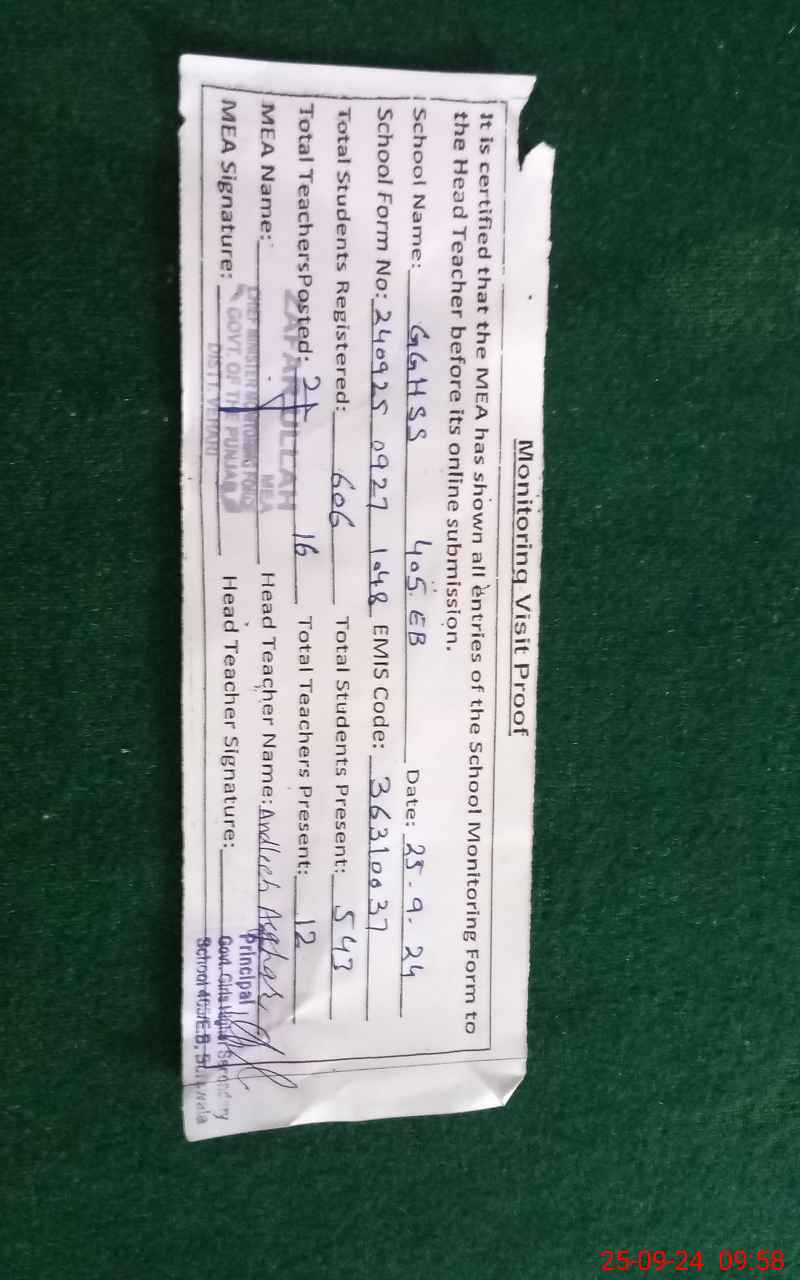 Monitoring Visit Proof
It is certified that the MEA has shown all entries of the School Monitoring Form to
the Head Teacher before its online submission.
School Name: GGHSS 405.EB Date: 25.9.24
School Form No: 240925 0927 1048 EMIS Code: 36310037
Total Students Registered: 606 Total Students Present: 543
Total TeachersPosted: 16 Total Teachers Present: 12
MEA Name: Head Teacher Name: Andleeb Asghar
MEA Signature: Head Teacher Signature:
ZAFARULLAH
MEA
CHIEF MINISTER MONITORING FORCE
GOVT. OF THE PUNJAB
DISTT. VEHARI
Principal
Govt. Girls Higher Secondary
School 405/E.B, Burewala
25-09-24 09:58